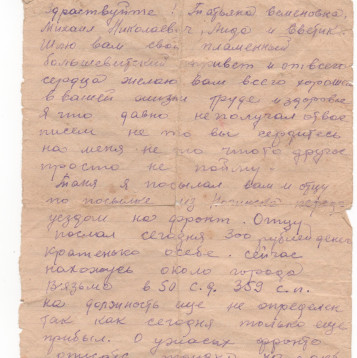 Здраствуйте! Татьяна Семеновна,
Михаил Николаевич, Лида и Светик.
Шлю вам свой пламенный
большевитский привет и от всего
сердца желаю вам всего хорошего
в вашей жизни труде и здоровье
Я что давно не получал от вас
писем не то вы сердитесь
на меня не то что то другое
просто не пойму.
Таня я посылал вам и отцу
по посылке из перед
уездом на фронт. Отцу
послал сегодня 300 рублей денег
кратенько о себе. сейчас
нахожусь около города
Вязьма в 50 с.д. 359 с.п.
на должность еще не определен
так как сегодня только еще
прибыл. О ужасах фронта